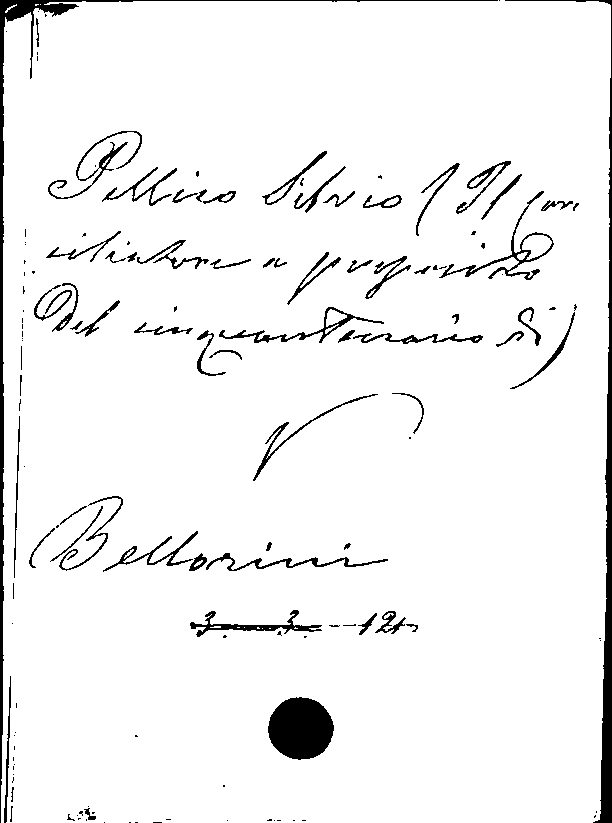 Pellico Silvio (Il Con
ciliatore a proposito
del cinquantenario di)
V
Bellorini
3 3 12